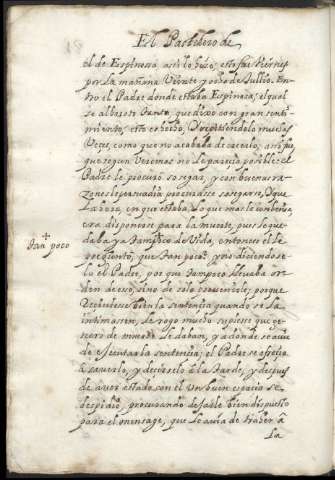 18
El Pastelero de
el de Espinosa assi lo hizo, esto fue viernes
por la mañana Veinte y ocho de Jullio. En-
tro el Padre donde estaba Espinosa, el qual
se alboroto tanto, que dixo con gran senti-
miento, esto es hecho, y repitiendolo muchas
Veces, como que no acababa de creerlo, assi fue
que segun Veremos no le parecia posible: el
Padre le procuró sosegar, y con buenas ra-
zones le persuadia procurasse sosegarse, y que
la hora, en que estaba, lo que mas le combenia
era disponerse para la muerte, pues lo que
daba ya tan poco de Vida, entonces el le
pregunto, que tan poco? y no diciendose
lo el Padre, por que tampoco llevaba or-
den de esso, sino de solo prevenirle, porque
recibiesse bien la sentencia quando se la
intimassen, le rogo mucho supiesse que ge-
nero de muerte le daban, y a donde se avia
de executar la sentencia; el Padre se ofrecio
a saverlo, y decirselo a la tarde, y despues
de aver estado con el Un buen espacio se
despidio, procurando dejarle bien dispuesto
para el mensage, que le avia de traher a
la
+
tan poco